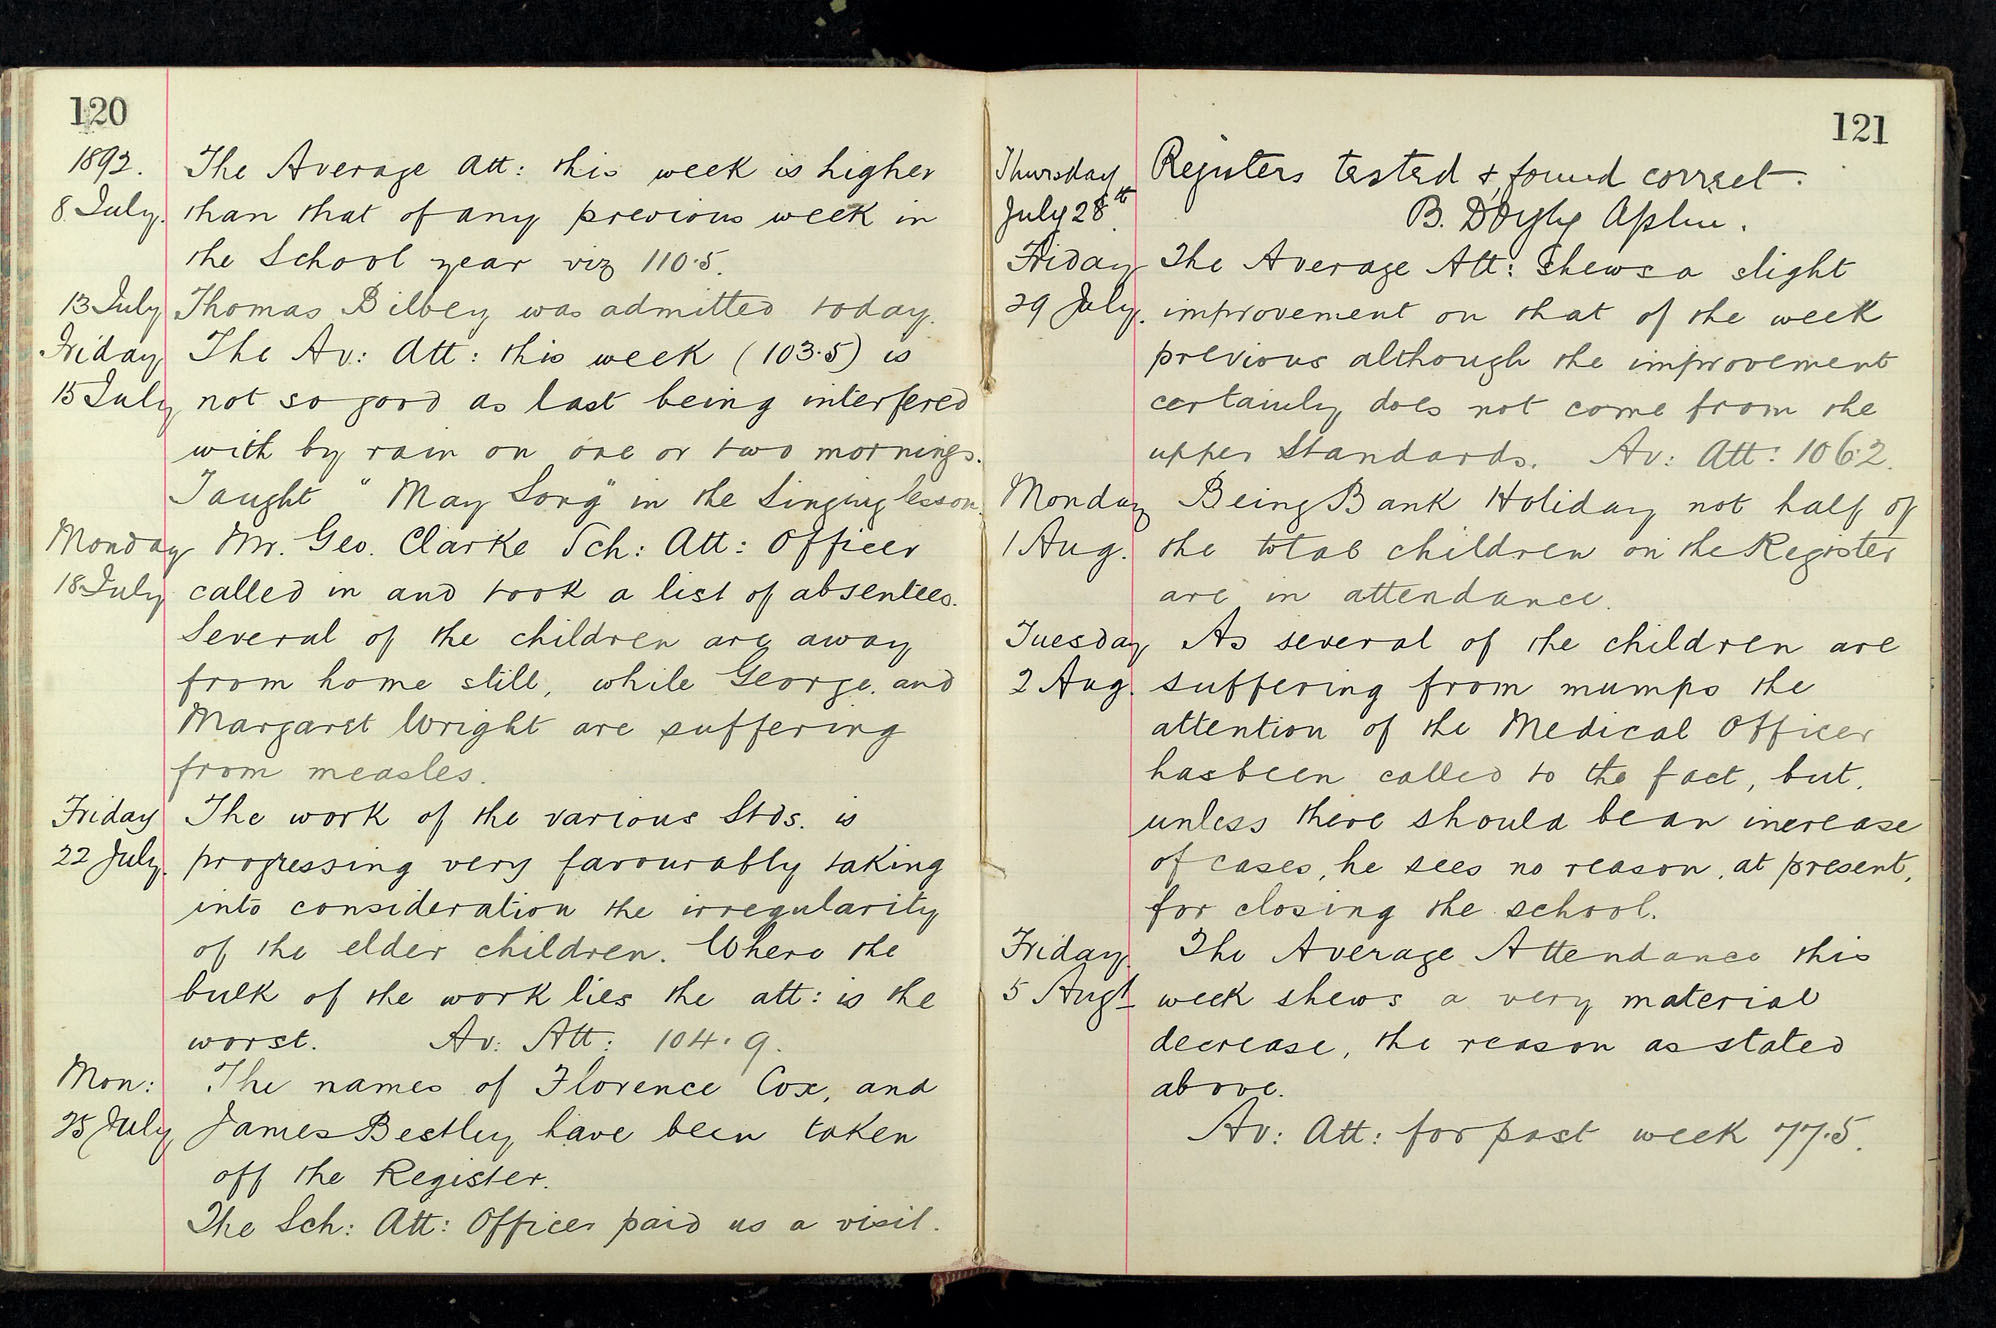 120
1892. The Average Att: this week is higher
8 July. than that of any previous week in
the School year viz 110.5.
13 July Thomas Bilbey was admitted today.
Friday The Av: Att: this week (103.5) is
15 July not so good as last being interfered
with by rain on one or two mornings.
Taught "May Song" in the Singing lesson.
Monday Mr. Geo. Clarke Sch: Att: Officer
18 July called in and took a list of absentees.
Several of the children are away
from home still, while George and
Margaret Wright are suffering
from measles.
Friday The work of the various Stds. is
22 July. progressing very favourably taking
into consideration the irregularity
of the elder children. Where the
bulk of the work lies the att: is the
worst. Av: Att: 104.9.
Mon: The names of Florence Cox, and
25 July James Bestley have been taken
off the Register.
The Sch: Att: Officer paid us a visit.
121
Thursday Registers tested & found correct.
July 28th B. D'Oyly Aplin.
Friday The Average Att: Shews a slight
29 July. improvement on that of the week
previous although the improvement
certainly does not come from the
upper Standards. Av: Att: 106.2.
Monday Being Bank Holiday not half of
1 Aug. the total children on the Register
are in attendance.
Tuesday As several of the children are
2 Aug. suffering from mumps the
attention of the Medical Officer
has been called to the fact, but,
unless there should be an increase
of cases, he sees no reason, at present,
for closing the school.
Friday The Average Attendance this
5 Augt week shews a very material
decrease, the reason as stated
above.
Av: Att: for past week 77.5.